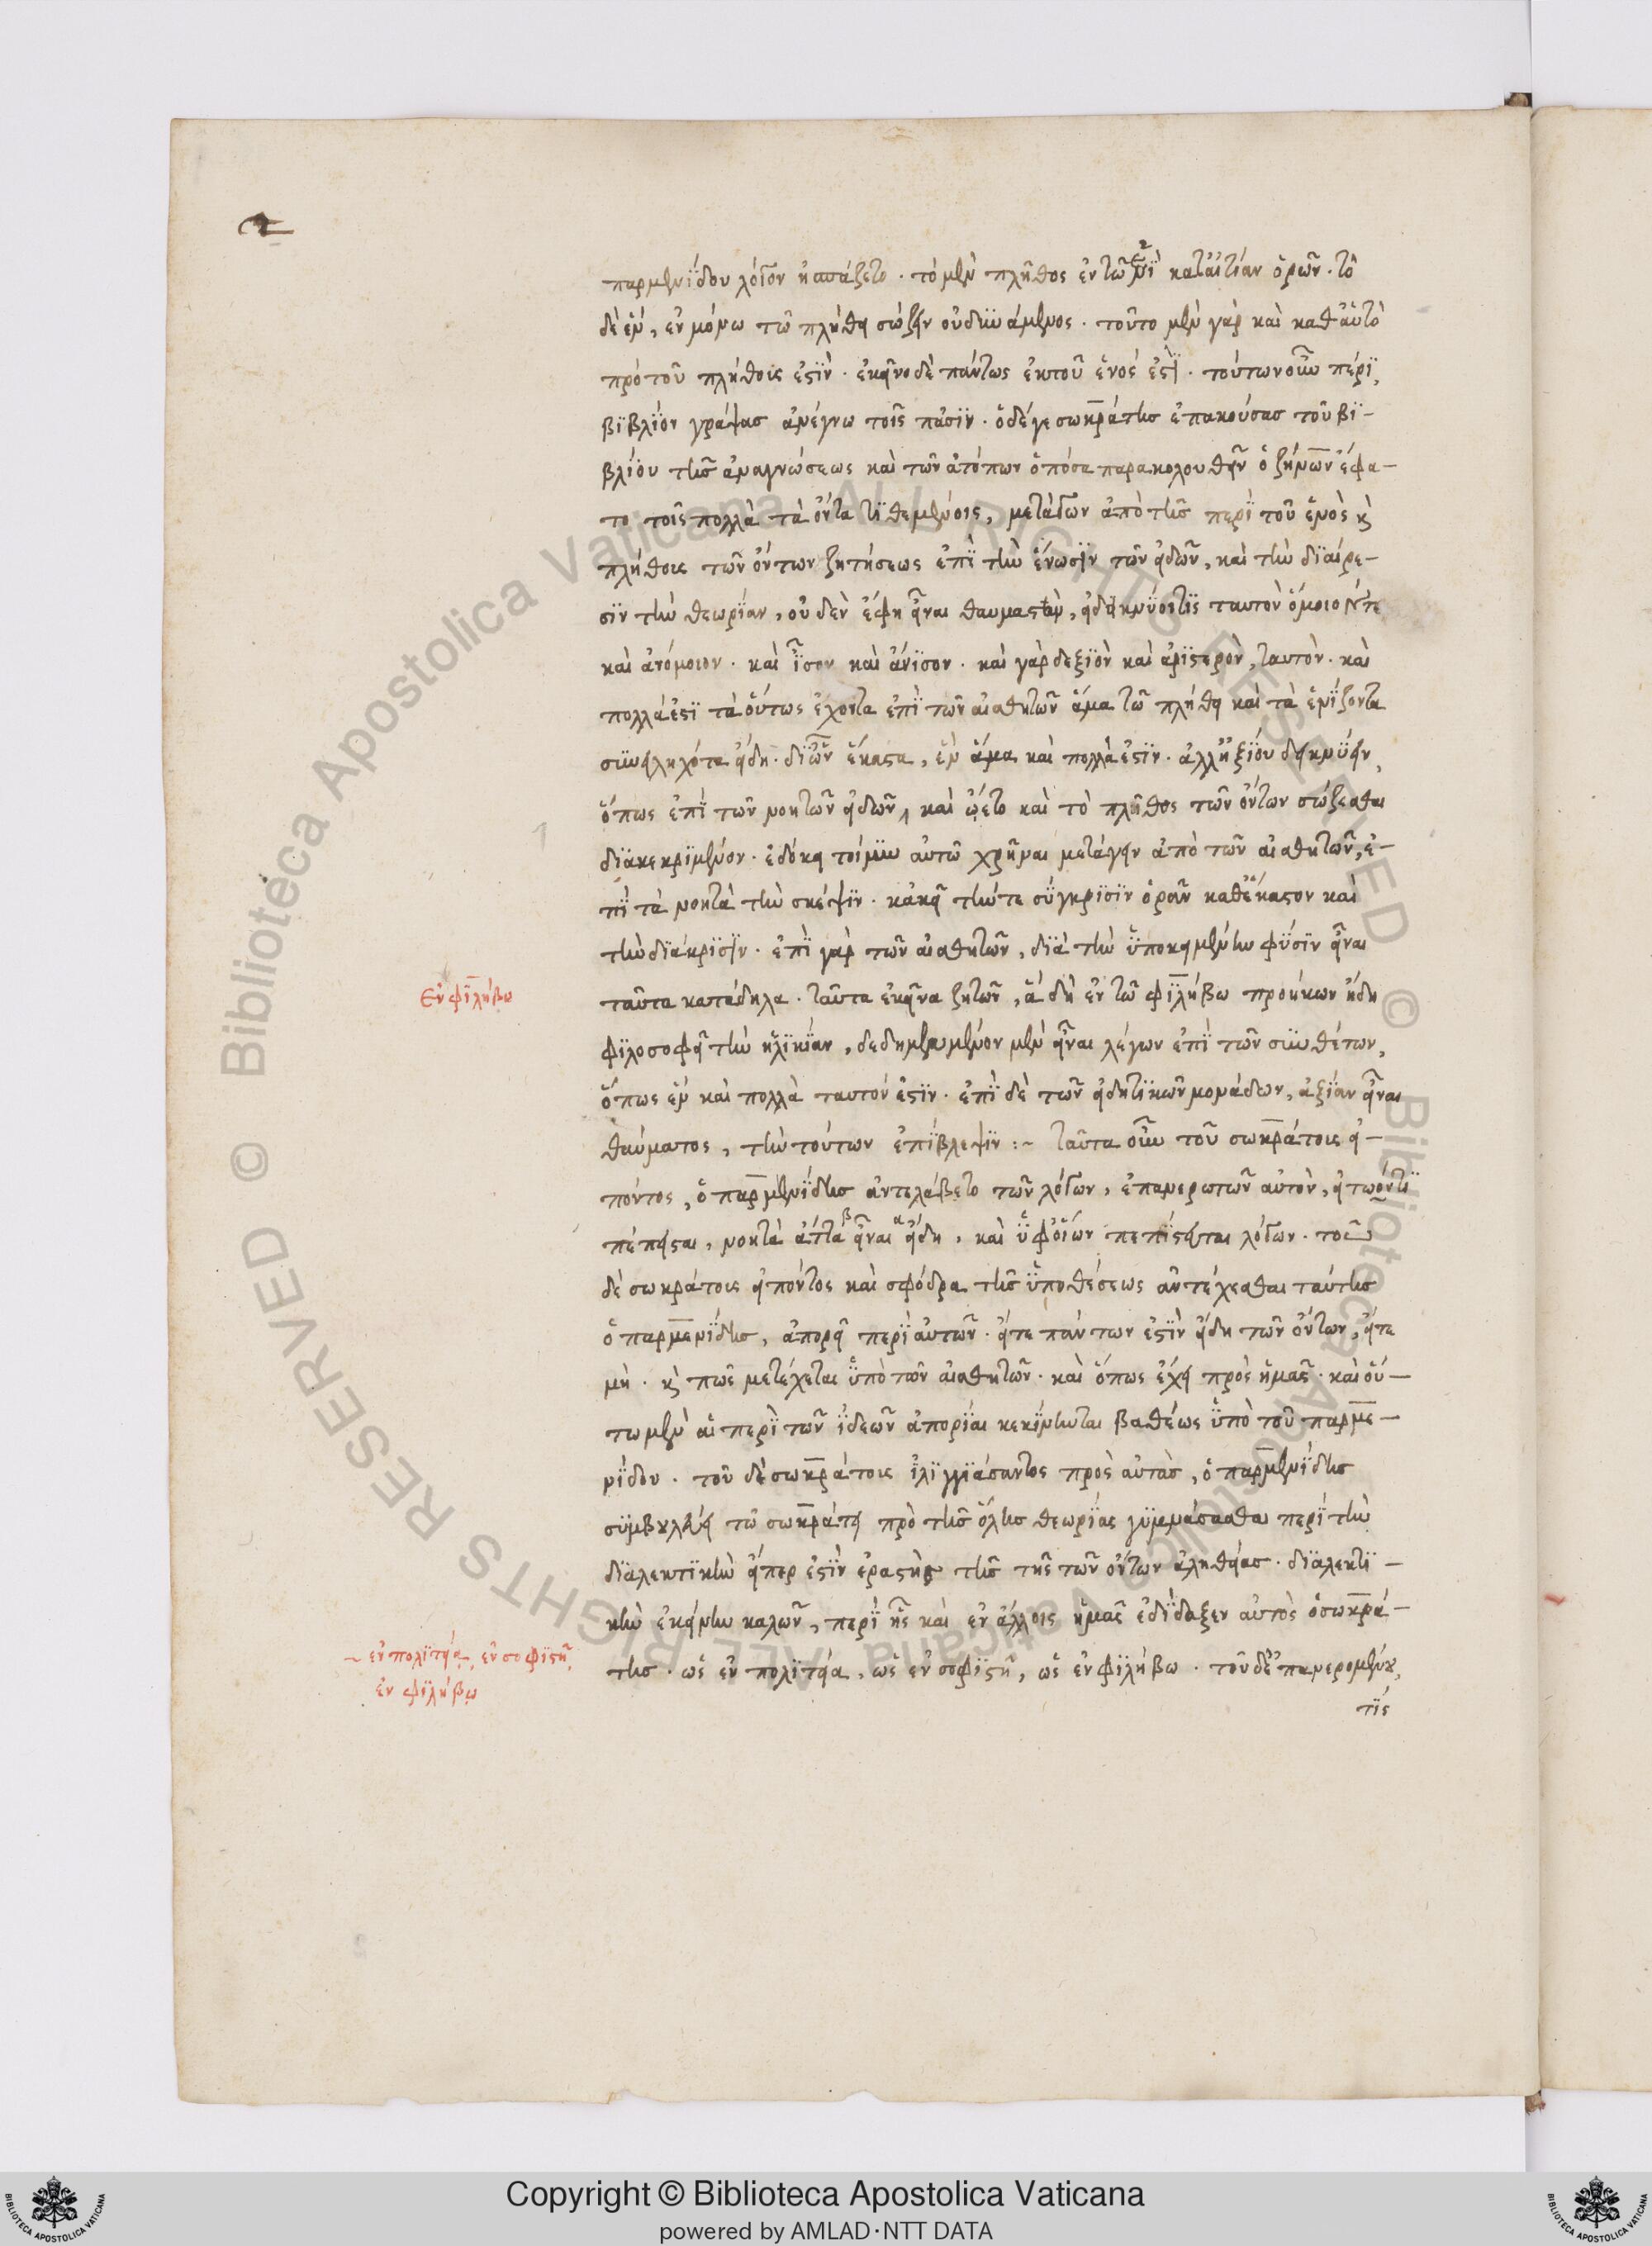 παρμενίδου λόγον ἠσπάζετο · τὸ μὲν πλῆθος ἐν τῶ ἑνὶ κατ' αἰτίαν ὁρῶν · τὸ
δὲ ἓν, ἐν μόνω τῶ πλήθει σώζειν οὐ δυνάμενος · τοῦτο μὲν γὰρ καὶ καθ' αὑτὸ
πρὸ τοῦ πλήθους ἐστὶν · ἐκεῖνο δὲ πάντως ἐκ τοῦ ἑνός ἐστι · τούτων οὖν πέρι,
βιβλίον γράψας ἀνέγνω τοῖς πᾶσιν · ὁ δέγε σωκράτης ἐπακούσας τοῦ βι-
βλίου τῆς ἀναγνώσεως καὶ τῶν ἀτόπων ὁπόσα παρακολουθεῖν ὁ ζήνων ἔφα-
το τοῖς πολλὰ τὰ ὄντα τιθεμένοις, μετάγων ἀπὸ τῆς περὶ τοῦ ἑνὸς κὶ
πλήθους τῶν ὄντων ζητήσεως ἐπὶ τὴν ἕνωσιν τῶν εἰδῶν, καὶ τὴν διαίρε-
σιν τὴν θεωρίαν, οὐδὲν ἔφη εἶναι θαυμαστὸν, εἰ δεικνύοι τις ταυτὸν ὅμοιόν τε
καὶ ἀνόμοιον · καὶ ἶσον καὶ ἄνισον · καὶ γὰρ δεξιὸν καὶ ἀριστερὸν, ταυτὸν · καὶ
πολλά ἐστι τὰ οὕτως ἔχοντα ἐπὶ τῶν αἰσθητῶν ἅμα τῶ πλήθει καὶ τὰ ἑνίζοντα
συνειληχότα εἴδη · δι' ὧν ἕκαστα, ἓν ἅμα καὶ πολλά ἐστιν · ἀλλ' ἠξίου δεικνύειν,
ὅπως ἐπὶ τῶν νοητῶν εἰδῶν, καὶ ὤετο καὶ τὸ πλῆθος τῶν ὄντων σώζεσθαι
διακεκριμένον · ἐδόκει τοίνυν αὐτῶ χρῆναι μετάγειν ἀπὸ τῶν αἰσθητῶν, ἐ-
πὶ τὰ νοητὰ τὴν σκέψιν · κἀκεῖ τήν τε σύγκρισιν ὁρᾶν καθ' ἕκαστον καὶ
τὴν διάκρισιν · ἐπὶ γὰρ τῶν αἰσθητῶν, διὰ τὴν ὑποκειμένην φύσιν εἶναι
ταῦτα κατάδηλα · ταῦτα ἐκεῖνα ζητῶν, ἃ δὴ ἐν τῶ φιλήβω προήκων ἤδη
Ἐν φιλήβω
φιλοσοφεῖ τὴν ἡλικίαν, δεδημευμένον μὲν εἶναι λέγων ἐπὶ τῶν συνθέτων,
ὅπως ἓν καὶ πολλὰ ταυτόν ἐστιν · ἐπὶ δὲ τῶν εἰδητικῶν μονάδων, ἀξίαν εἶναι
θαύματος, τὴν τούτων ἐπίβλεψιν :~ ταῦτα οὖν τοῦ σωκράτους εἰ-
πόντος, ὁ παρμενίδης ἀντελάβετο τῶν λόγων, ἐπανερωτῶν αὐτὸν, εἰ τωόντι
πέπεισται, νοητὰ ἄττα β εἶναι α εἴδη, καὶ ὑφ' οἵων πεπίστευται λόγων · τοῦ
δὲ σωκράτους εἰπόντος καὶ σφόδρα τῆς ὑποθέσεως ἀντέχεσθαι ταύτης
ὁ παρμενίδης, ἀπορεῖ περὶ αὐτῶν · εἴτε πάντων ἐστὶν εἴδη τῶν ὄντων, εἴτε
μή · κὶ πῶς μετέχεται ὑπὸ τῶν αἰσθητῶν · καὶ ὅπως ἔχει πρὸς ἡμᾶς · καὶ οὕ-
τω μὲν αἱ περὶ τῶν ἰδεῶν ἀπορίαι κεκίνηνται βαθέως ὑπὸ τοῦ παρμε-
νίδου · τοῦ δὲ σωκράτους ἰλιγγιάσαντος πρὸς αὐτὰς, ὁ παρμενίδης
συμβουλεύει τῶ σωκράτει πρὸ τῆς ὅλης θεωρίας γυμνάσασθαι περὶ τὴν
διαλεκτικὴν εἴπερ ἐστὶν ἐραστὴς τῆς τῶν ὄντων ἀληθείας · διαλεκτι-
κὴν ἐκείνην καλῶν, περὶ ἧς καὶ ἐν ἄλλοις ἡμᾶς ἐδίδαξεν αὐτὸς ὁ σωκρά-
της · ὡς ἐν πολιτεία, ὡς ἐν σοφιστῆ, ὡς ἐν φιλήβω · τοῦ δὲ ἐπανερομένου,
~ ἐν πολιτεία, ἐν σοφιστῆ,
ἐν φιλήβω
τίς